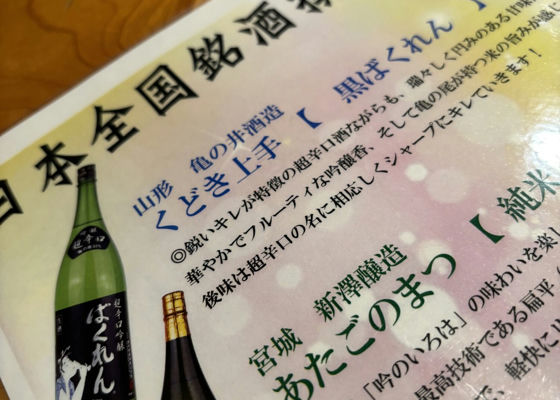 日本全国銘酒
山形 亀の井酒造
くどき上手【 黒ばくれん 】
◎鋭いキレが特徴の超辛口酒ながらも、瑞々しく円みのある甘味
華やかでフルーティな吟醸香、そして亀の尾が持つ米の旨みが感じ
後味は超辛口の名に相応しくシャープにキレていきます!
宮城 新澤醸造
あたごのまつ 【 純米
「吟のいろは」の味わいを楽し
最高技術である扁平
で、軽快に
超辛口
超辛口吟醸
ばくれん